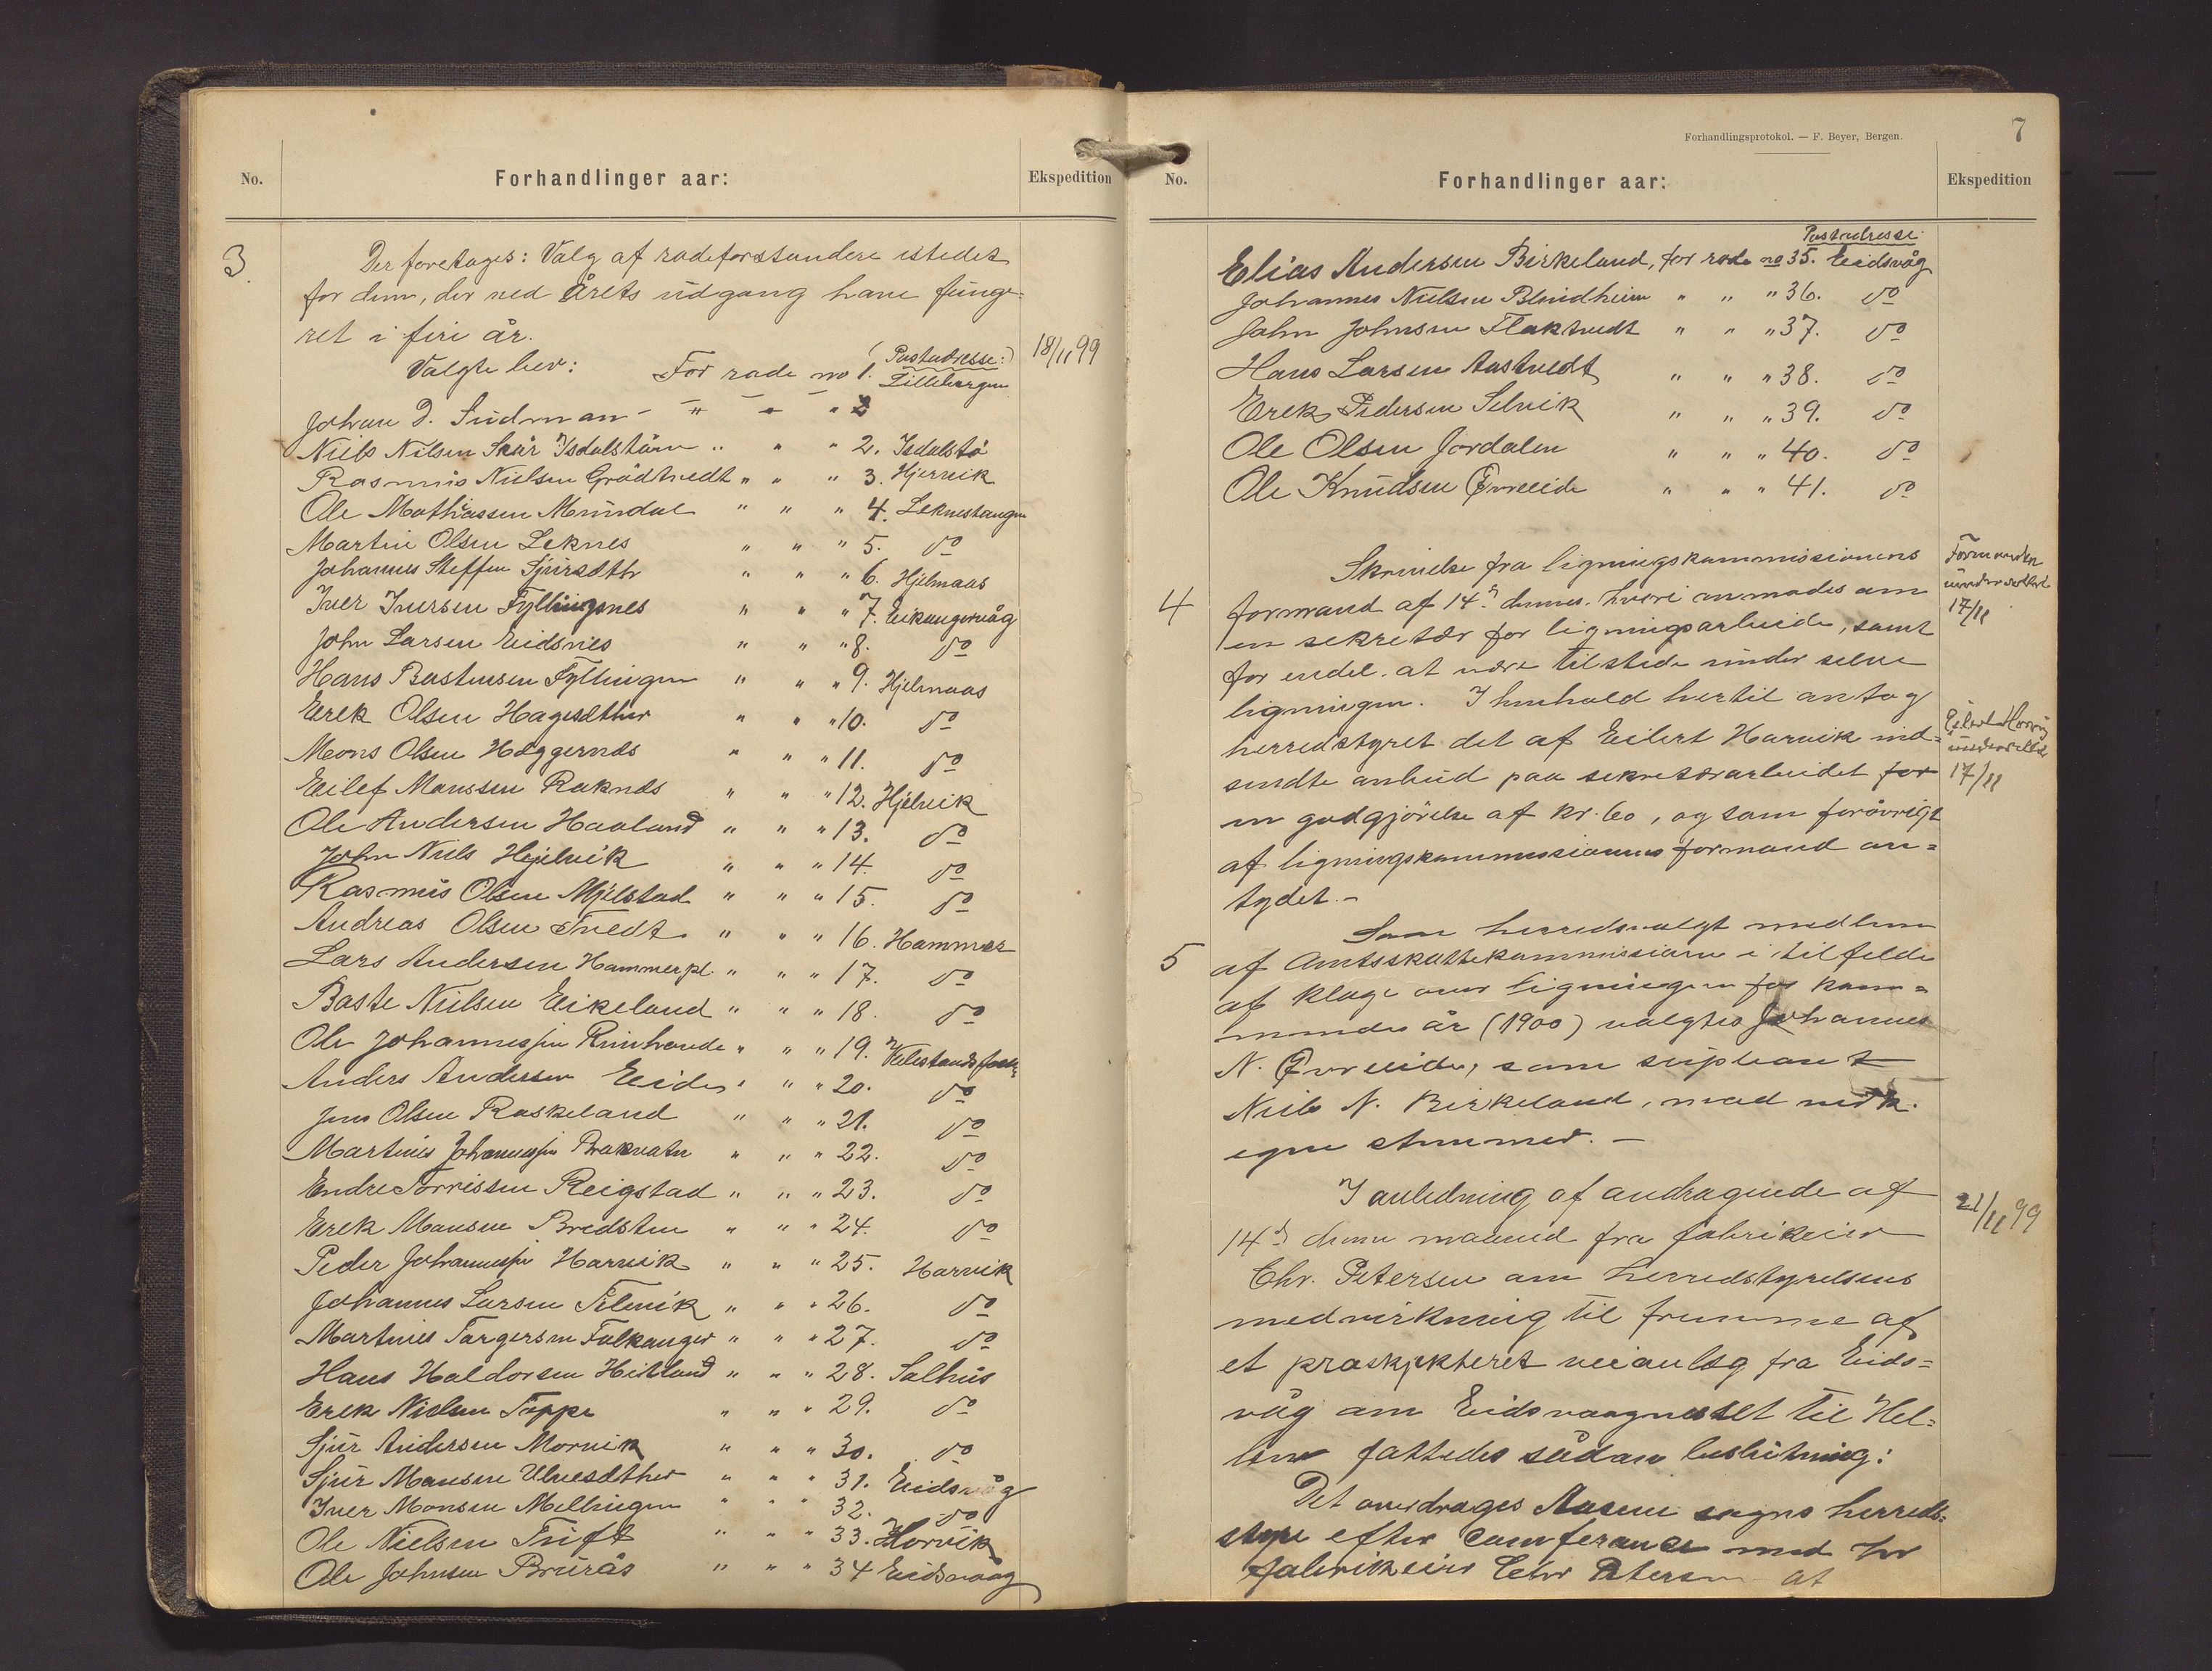 No.
Forhandlinger aar:
Ekspedition
3.
Der foretages: Valg af rodeforstandere istedet
for dem, der ved Årets udgang have funge-
ret i fire år.
18/11 99
Valgte blev: For rode no 1. (Postadresse:)
Lillebergen
Johan D. Sudman - " - " - " 2
Niels Nilsen Skår Isdalstøen " " " 2. Isdalstø
Rasmus Nielsen Grådtvedt " " " 3. Hjervik
Ole Mathiassen Mundal " " " 4. Leknestangen
Martin Olsen Leknes " " " 5. do
Johannes Steffen Sjursæthr " " " 6. Hjelmaas
Iver Iversen Fyllingsnes " " " 7. Eikangervåg
John Larsen Eidsnes " " " 8. do
Hans Bastesen Fyllingen " " " 9. Hjelmaas
Erek Olsen Hagesæther " " " 10. do
Mons Olsen Hæggernæs " " " 11. do
Eilef Monsen Raknæs " " " 12. Hjelvik
Ole Andersen Haaland " " " 13. do
John Niels Hjelvik " " " 14. do
Rasmus Olsen Mjelstad " " " 15. do
Andreas Olsen Tvedt " " " 16. Hammer
Lars Andersen Hammerpl. " " " 17. do
Baste Nielsen Eikeland " " " 18. do
Ole Johannessen " " " 19.
Anders Andersen Eide " " " 20. do
Jens Olsen Roskeland " " " 21. do
Martinus Johannessen Brakvatn " " " 22. do
Endre Torrissen Reigstad " " " 23. do
Erek Monsen Bredsten " " " 24. do
Peder Johannessen Horvik " " " 25. Horvik
Johannes Larsen Tellevik " " " 26. do
Martinus Torgersen Falkanger " " " 27. do
Hans Haldorsen Hitland " " " 28. Salhus
Erek Nielsen Toppe " " " 29. do
Sjur Andersen Morvik " " " 30. do
Sjur Monsen Ulvesæther " " " 31. Eidsvåg
Iver Monsen Mellingen " " " 32. do
Ole Nielsen Tuft " " " 33. Horvik
Ole Johnsen Brurås " " " 34 Eidsvaag
Forhandlingsprotokol. — F. Beyer, Bergen.
7
No.
Forhandlinger aar:
Ekspedition
Postadresse
Elias Andersen Birkeland, for rode no 35. Eidsvåg
Johannes Nielsen Blindheim " " " 36. do
John Johnsen Flaktvedt " " " 37. do
Hans Larsen Aastvedt " " " 38. do
Erek Pedersen Selvik " " " 39. do
Ole Olsen Jordalen " " " 40. do
Ole Knudsen Øvreeide " " " 41. do
4
Skrivelse fra ligningskommissionens
formand af 14de dennes. hvori anmodes om
en sekretær for ligningsarbeide, samt
for endel. at være tilstede under selve
ligningen. I henhold hertil antog
herredstyret det af Eilert Harvik ind-
sendte anbud paa sekretærarbeidet for
en godgjörelse af kr. 60, og som forøvrigt
af ligningskommissionens formand an-
tydet.-
Formanden
underrettet
17/11
Eilert Horvig
underrettet
17/11
5
Som herredsvalgt medlem
af Amtsskattekommissionen i tilfelde
af klage over ligningen for kom-
mende år (1900) valgtes Johannes
N. Øvreeide, som supleant
Niels N. Birkeland, mod
egne stemmer. -
I anledning af andragende af
14de denne maaned fra fabrikeier
Chr. Petersen om herredstyrelsens
medvirkning til fremme af
et prosjekteret veianlæg fra Eids-
våg om Eidsvaagnesset til Hel-
len fattedes sådan beslutning:
21/11 99
Det overdrages Aasene sogns herreds-
styre efter Comferance med hr
fabrikeier Chr Petersen at